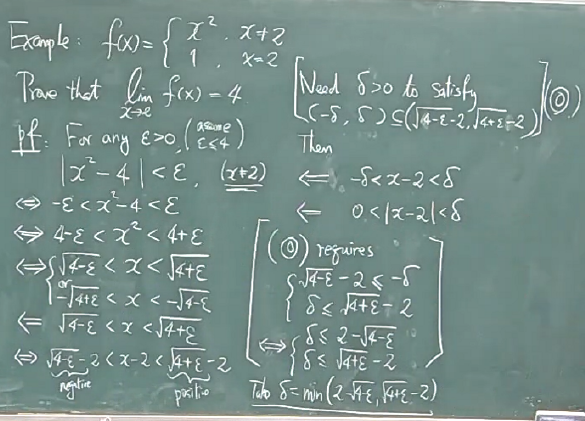 Example: f(x) = { x², x≠2
1, x=2
Prove that lim f(x) = 4
x→2
pf: For any ε>0, (assume ε≤4)
|x²-4| < ε, (x≠2)
⇔ -ε < x²-4 < ε
⇔ 4-ε < x² < 4+ε
⇔ { √4-ε < x < √4+ε
or
-√4+ε < x < -√4-ε
⇐ √4-ε < x < √4+ε
⇔ √4-ε -2 < x-2 < √4+ε -2
negative positive
[Need δ>0 to satisfy
(-δ, δ) ⊆ (√4-ε -2, √4+ε -2)] (◎)
Then
⇐ -δ < x-2 < δ
⇐ 0 < |x-2| < δ
[(◎) requires
{ √4-ε -2 ≤ -δ
δ ≤ √4+ε -2
⇔ { δ ≤ 2-√4-ε
δ ≤ √4+ε -2]
Take δ = min(2-√4-ε, √4+ε -2)